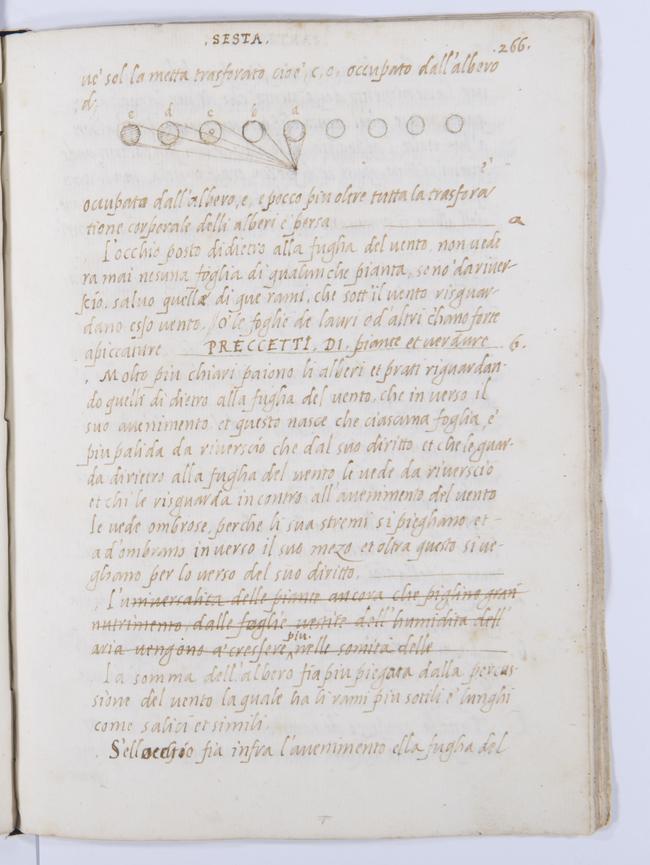 .SESTA.
.266.
ve' sol la metta trasforato cioe', c, o, occupato dall'albero
d,
e d c b a
occupato dall'albero, e, e pocco piu oltre tutta la trasfora
e'
tione corporale delli alberi e' persa
a
L'occhio posto di dietro alla fugha del vento, non vede
ra mai nesuna foglia di qualunche pianta, se no' da river-
scio, salvo quelle di que rami, che sott'il vento risguar-
dano esso vento. O le foglie de lauri od'altri c'hano forte
apiccature PRECCETTI. DI. piante et verdure
6.
. Molto piu chiari paiono li alberi et prati riguardan-
do quelli di dietro alla fugha del vento, che in verso il
suo avenimento, et questo nasce che ciascuna foglia, e'
piu palida da riverscio che dal suo diritto et che le guar-
da dirietro alla fugha del vento le vede da riverscio
et chi le risguarda in contro all'avenimento del vento
le vede ombrose, perche li sua stremi si pieghano et
a d'ombrano in verso il suo mezo, et oltra questo si ve-
ghano per lo verso del suo diritto.
L'universalita delle piante ancora che piglino gran
nutrimento, dalle foglie vestite dell'humidita dell'
piu
aria vengono a' cressere nelle somita delle
La somma dell'albero fia piu piegata dalla percus-
sione del vento la quale ha li rami piu sotili e' lunghi
come salici et simili.
. S'ell occhio fia infra l'avenimento ella fugha del